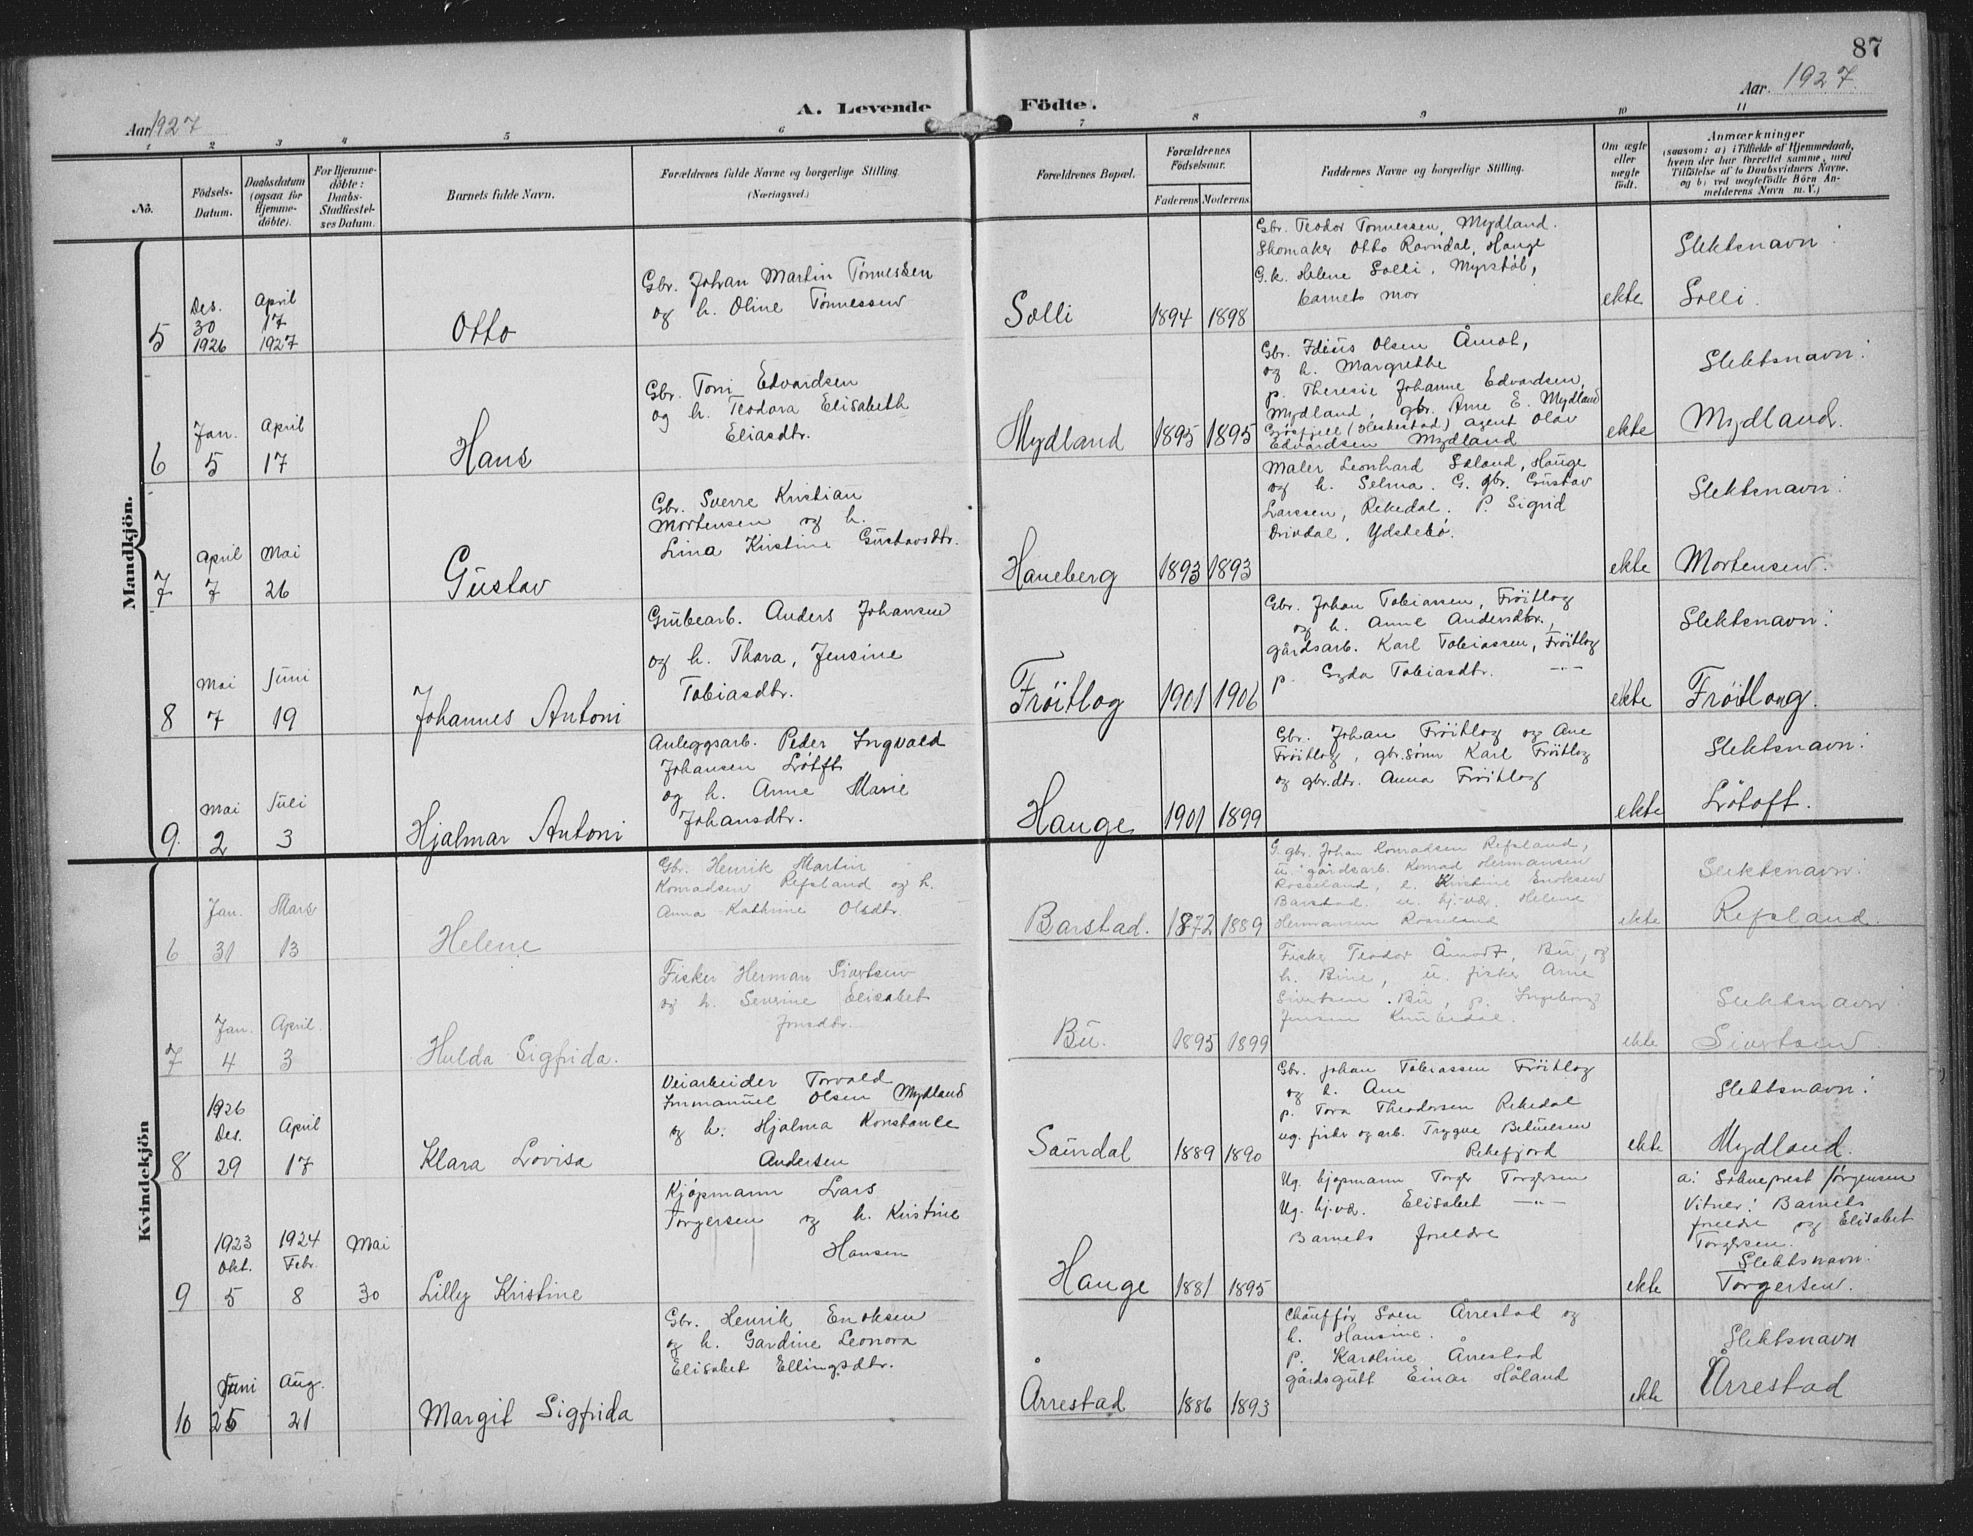 87
Aar 1927
A. Levende Födte.
Aar 1927
1 2 3 4 5 6 7 8 9 10 11
No.
Födsels-
Datum.
Daabsdatum
(ogsaa for
Hjemme-
döbte).
For Hjemme-
döbte:
Daabs-
Stadfæstel-
ses Datum.
Barnets fulde Navn.
Forældrenes fulde Navne og borgerlige Stilling
(Næringsvei.)
Forældrenes Bopæl.
Forældrenes
Födselsaar.
Faderens Moderens
Faddernes Navne og borgerlige Stilling.
Om ægte
eller
uægte
födt.
Anmærkninger
(saasom: a) i Tilfælde af Hjemmedaab,
hvem der har forrettet samme, med
Tilföielse af to Daabsvidners Navne,
og b) ved uægtefödte Börn An-
melderens Navn m. V.)
Mandkjön.
5
Des.
30
1926
April
17
1927
Otto
Gbr. Johan Martin Tønnessen
og h. Oline Tønnessen
Solli
1894 1898
Gbr. Teodor Tønnessen, Mydland.
Skomaker Otto Ravndal, Hauge
G.k. Helene Solli, Myrstøl,
barnets mor
ekte
Slektsnavn:
Solli.
6
Jan.
5
April
17
Hans
Gbr. Toni Edvardsen
og h. Teodora Elisabeth
Eliasdtr.
Mydland
1895 1895
Gbr. Idius Olsen Åmot,
og h. Margrethe
p. Theresie Johanne Edvardsen,
Mydland, gbr. Arne E. Mydland
(Heskestad) agent Olav
Edvardsen Mydland
ekte
Slektsnavn:
Mydland.
7
April
7
Mai
26
Gustav
Gbr. Sverre Kristian
Mortensen og h.
Lina Kristine Gustavsdtr.
Haneberg
1893 1893
Maler Leonhard Søland, Hauge
og h. Selma. G. gbr. Gustav
Larssen, Rekedal. P. Sigrid
Drivdal, Ydstebø.
ekte
Slektsnavn:
Mortensen.
8
Mai
7
Juni
19
Johannes Antoni
Grubearb. Anders Johansen
og h. Thora, Jensine
Tobiasdtr.
Frøitlog
1901 1906
Gbr. Johan Tobiassen, Frøitlog
og h. Anne Andersdtr.,
gårdsarb. Karl Tobiassen, Frøitlog
p. Tobiasdtr. —"—
ekte
Slektsnavn:
Frøitlog.
9.
Mai
2
Juli
3
Hjalmar Antoni
Anleggsarb. Peder Ingvald
Johansen Løtoft
og h. Anne Marie
Johansdtr.
Hauge
1901 1899
Gbr. Johan Frøitlog og Ane
Frøitlog, gbr.sønn Karl Frøitlog
og gbr.dtr. Anna Frøitlog
ekte
Slektsnavn:
Løtoft.
Kvindekjön
6
Jan.
31
Mars
13
Helene
Gbr. Henrik Martin
Konradsen Refsland og h.
Anna Kathrine Olsdtr.
Barstad.
1872 1889
G. gbr. Johan Konradsen Refsland,
u. gårdsarb. Konrad Hermansen
Rosseland, e. Kristine Enoksen
Barstad. u. hj.vær. Helene
Hermansen Rosseland
ekte
Slektsnavn:
Refsland.
7
Jan.
4
April.
3
Hulda Sigfrida.
Fisker Herman Sivertsen
og h. Severine Elisabet
Jonsdtr.
Bu.
1895 1899
Fisker Teodor Åmodt, Bu, og
h. Bine, u. fisker Arne
Sivertsen Bu, p. Ingeborg
Jensen
ekte
Slektsnavn:
Sivertsen.
8
1926
Des.
29
April
17
Klara Lovisa
Veiarbeider Torvald
Immanuel Olsen Mydland
og h. Hjalma Konstanse
Andersen
Saundal
1889 1890
Gbr. Johan Tobiassen Frøitlog
og h. Ane
p. Tora Theodorsen Rekedal
ug. fisker og arb. Trygve Betuelsen
Rekefjord
ekte
Slektsnavn:
Mydland.
9
1923
Okt.
5
1924
Febr.
8
Mai
30
Lilly Kristine
Kjøpmann Lars
Torgersen og h. Kristine
Hansen
Hauge
1881 1895
Ug. kjøpmann Torger Torgersen
Ug. hj.vær. Elisabet —"—
Barnets foreldre
ekte
a: Sokneprest Jørgensen
Vitner: Barnets
foreldre og Elisabet
Torgersen.
Slektsnavn:
Torgersen.
10
Juni
25
Aug.
21
Margit Sigfrida
Gbr. Henrik Enoksen
og h. Gardine Leonora
Elisabet Ellingsdtr.
Årrestad
1886 1893
Chauffør Soen Årrestad og
h. Hansine.
p. Karoline Årrestad
gårdsgutt Einar Håland
ekte
Slektsnavn
Årrestad